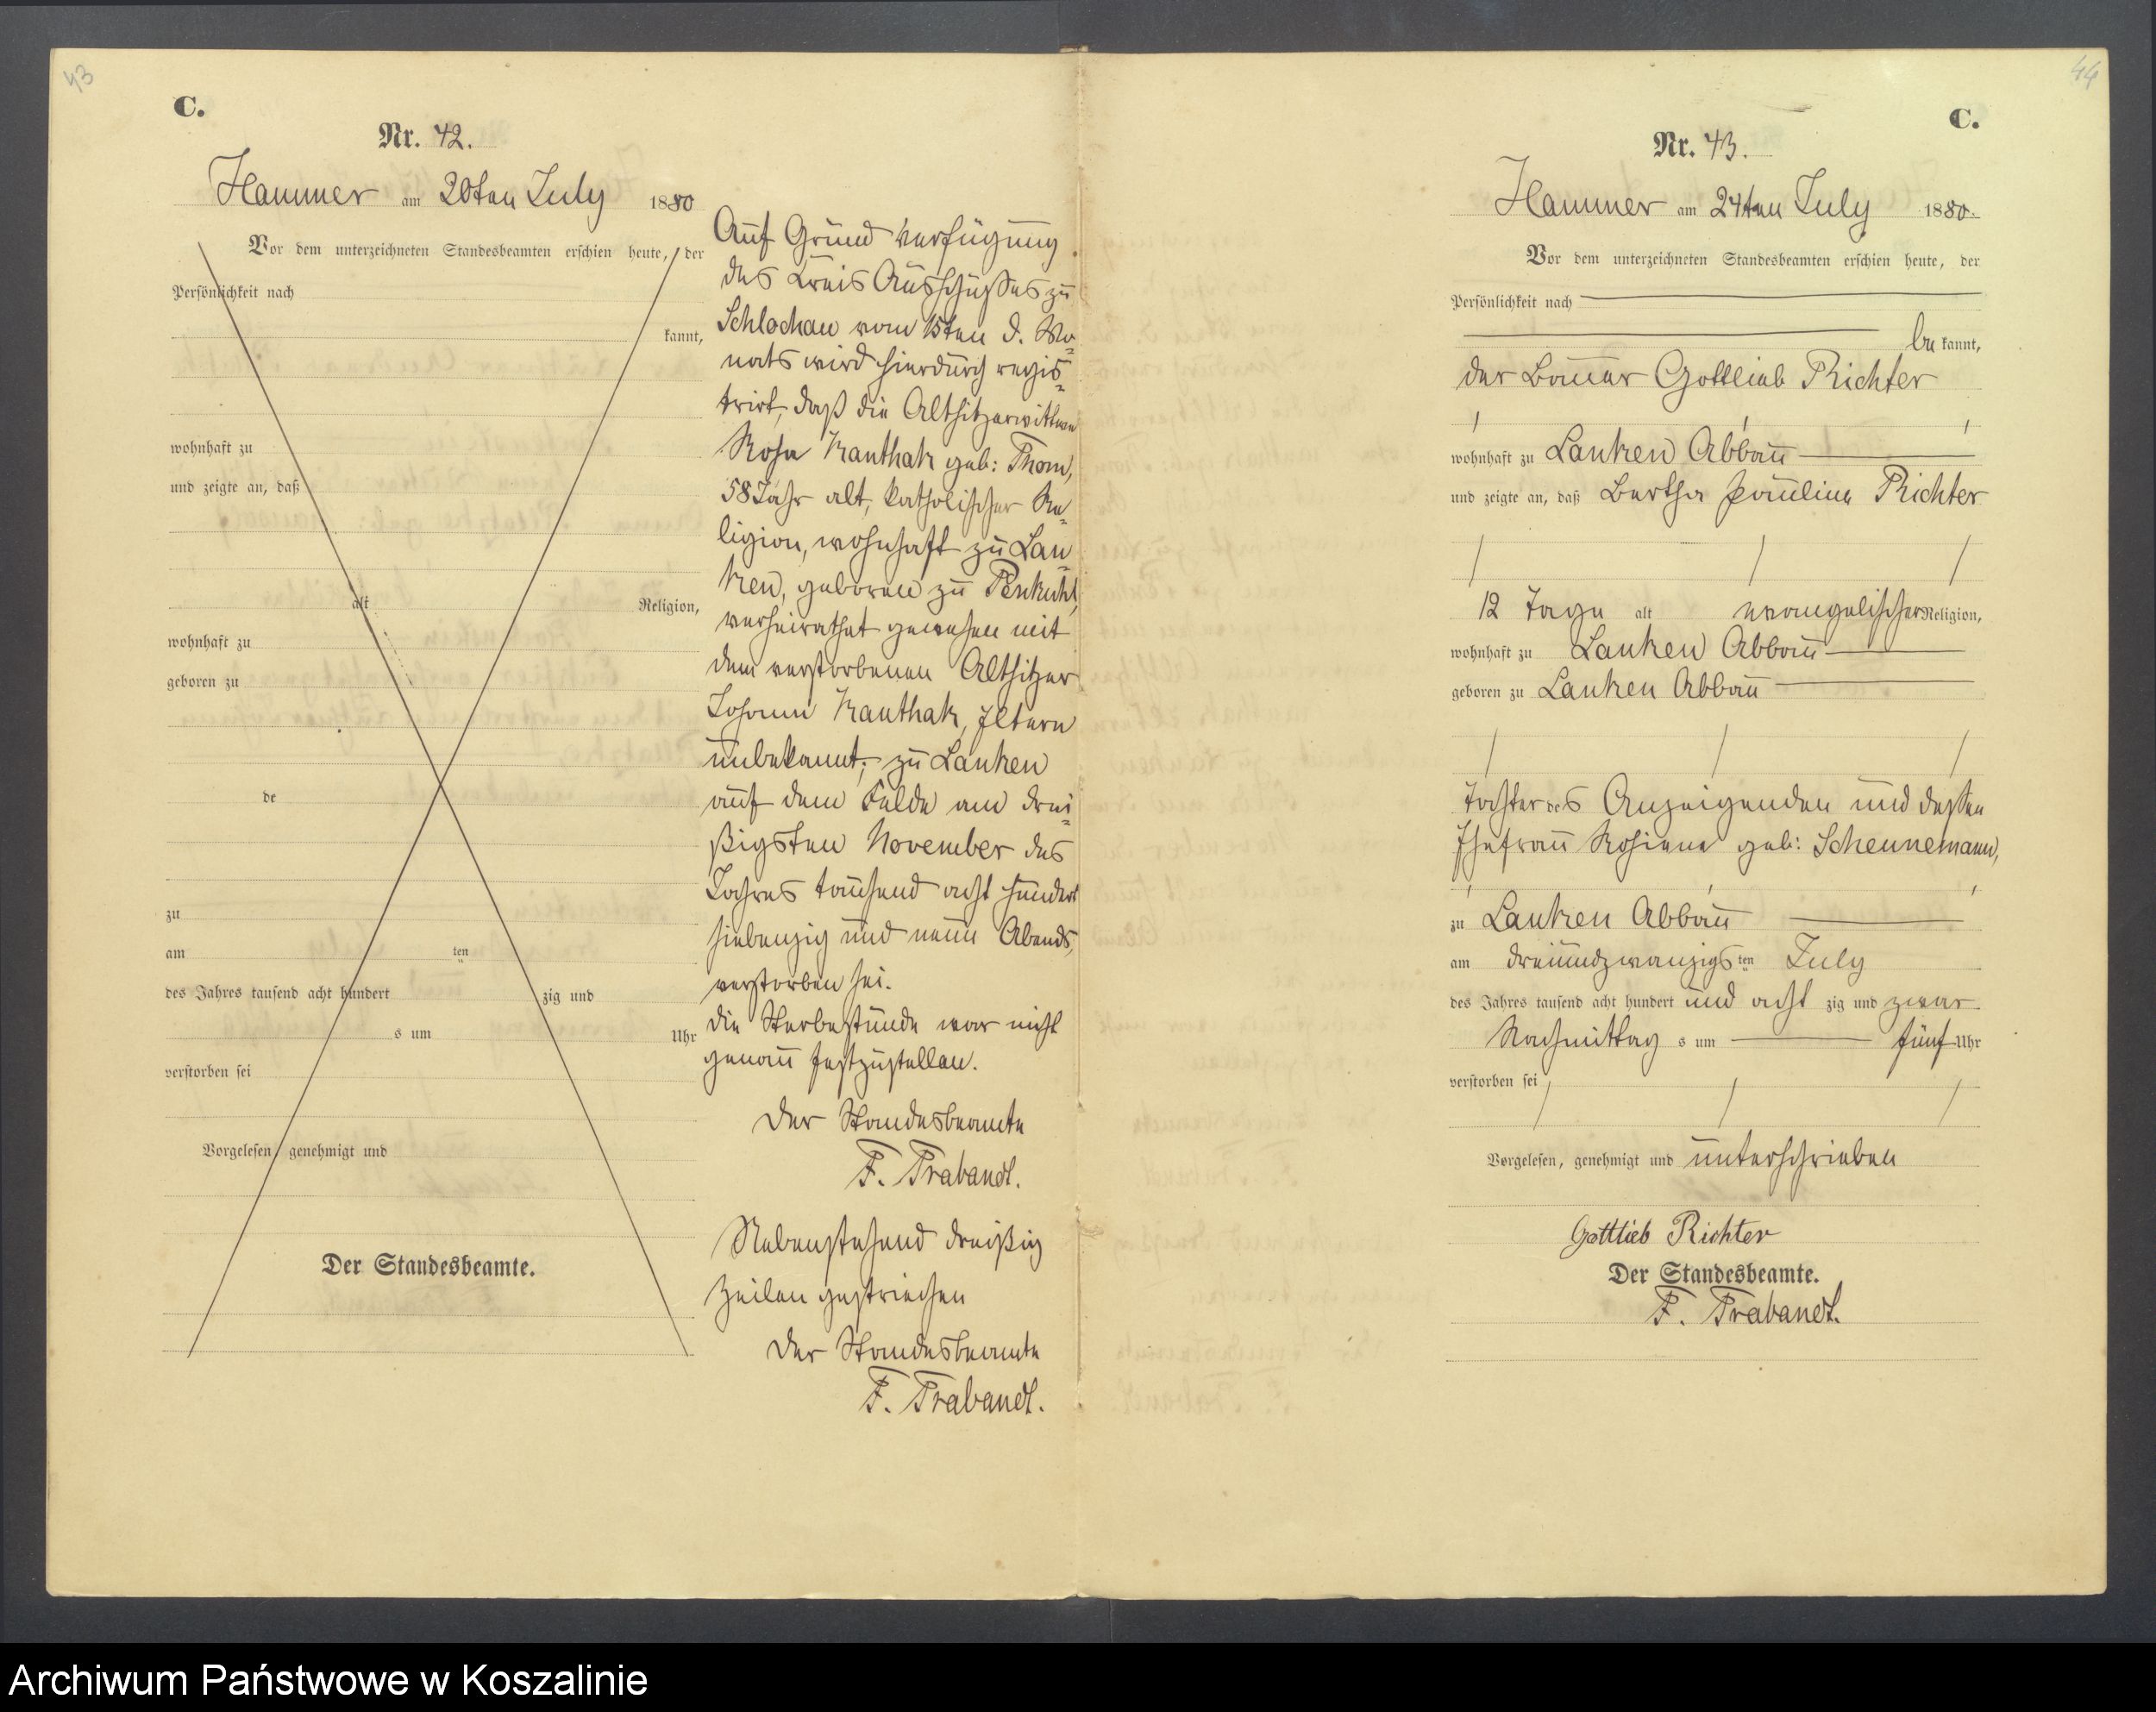 43
C.
Nr. 42.
Hammer am 20ten July 1880
Vor dem unterzeichneten Standesbeamten erschien heute, der
Persönlichkeit nach
kannt,
wohnhaft zu
und zeigte an, daß
alt Religion,
wohnhaft zu
geboren zu
de
zu
am ten
des Jahres tausend acht hundert zig und
s um Uhr
verstorben sei
Vorgelesen, genehmigt und
Der Standesbeamte.
Auf Grund Verfügung
des Kreis Ausschusses zu
Schlochau vom 15ten d. Mo-
nats wird hierdurch regis-
trirt, daß die Altsitzerwittwe
Rosa Kanthak geb: Thom,
58 Jahr alt, katholischer Re-
ligion, wohnhaft zu Lan-
ken, geboren zu Penkuhl,
verheirathet gewesen mit
dem verstorbenen Altsitzer
Johann Kanthak, Eltern
unbekannt, zu Lanken
auf dem Felde am drei-
ßigsten November des
Jahres tausend acht hundert
siebenzig und neun Abends,
verstorben sei.
Die Sterbestunde war nicht
genau festzustellen.
Der Standesbeamte
F. Trabandt.
Nebenstehend dreißig
Zeilen gestrichen
Der Standesbeamte
F. Trabandt.
44
C.
Nr. 43.
Hammer am 24ten July 1880.
Vor dem unterzeichneten Standesbeamten erschien heute, der
Persönlichkeit nach
be kannt,
der Bauer Gottlieb Richter
wohnhaft zu Lanken Abbau
und zeigte an, daß Bertha Pauline Richter
12 Tage alt evangelischer Religion,
wohnhaft zu Lanken Abbau
geboren zu Lanken Abbau
Tochter des Anzeigenden und dessen
Ehefrau Rosiene geb: Scheunemann,
zu Lanken Abbau
am dreiundzwanzigsten July
des Jahres tausend acht hundert und acht zig und zwar
Nachmittag s um fünf Uhr
verstorben sei
Vorgelesen, genehmigt und unterschrieben
Gottlieb Richter
Der Standesbeamte.
F. Trabandt.
Archiwum Państwowe w Koszalinie